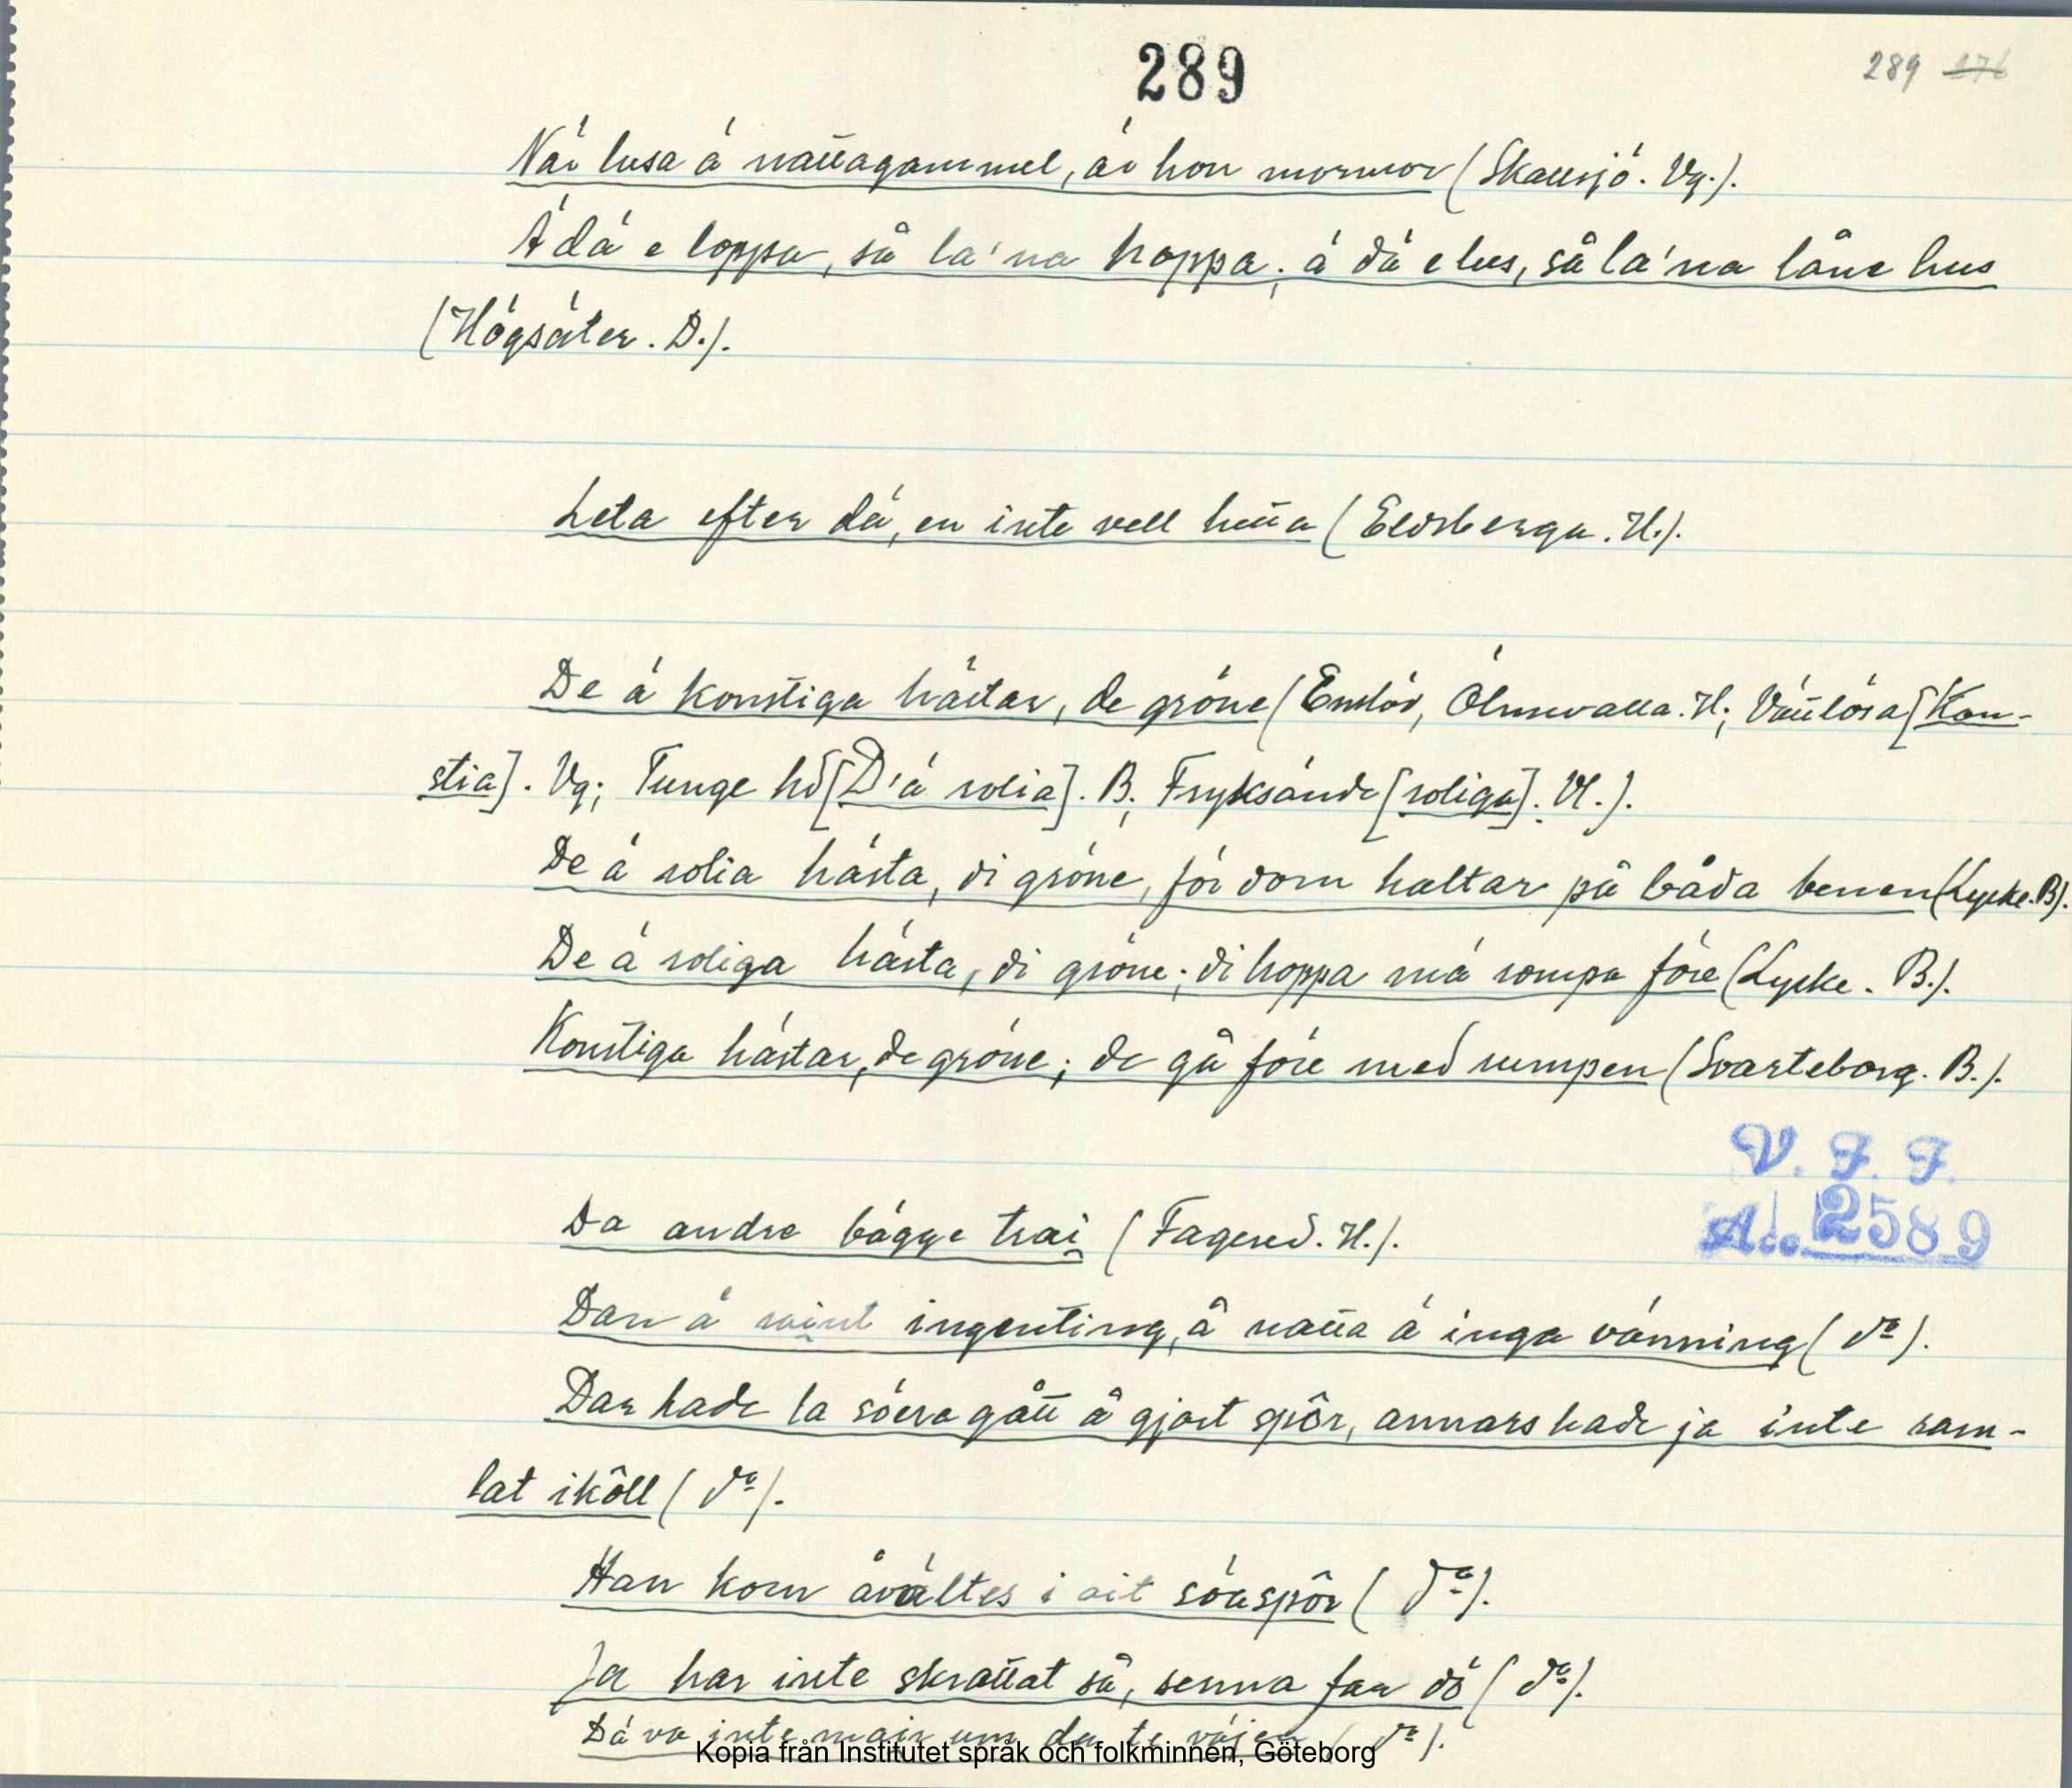 289
289 276
När lusa ä nattagammel, är hon mormor (Skallsjö. Vg.).
Ä dä e loppa, så la'na hoppa; ä dä e lus, så la'na låne hus
(Högsäter. D.).
Leta efter dä, en inte vell hetta (Eldsberga. H.).
De ä konstiga hästar, de gröne (Enslöv, Ölmevalla. H.; Vättlösa [Kon-
stia]. Vg; Tunge hd [D'ä rolia]. B; Fryksände [roliga]. Vl.).
De ä rolia hästa, di gröne, för dom haltar på båda benen (Lycke. B).
De ä roliga hästa, di gröne; di hoppa mä rompa före (Lycke. B.).
Konstiga hästar, de gröne; de gå före med rumpen (Svarteborg. B.).
V. F. F.
Acc. 2589
Da andre bägge trai (Fagered. H.).
Dan ä raint ingenting, å natta ä inga vänning (do).
Dar hade la söera gått å gjort spôr, annars hade ja inte ram-
lat ikôll (do).
Han kom åvältes i ait söaspôr (do).
Ja har inte skrattat så, senna far dö (do).
Dä va inte mair um da te väjen (do).
Kopia från Institutet språk och folkminnen, Göteborg